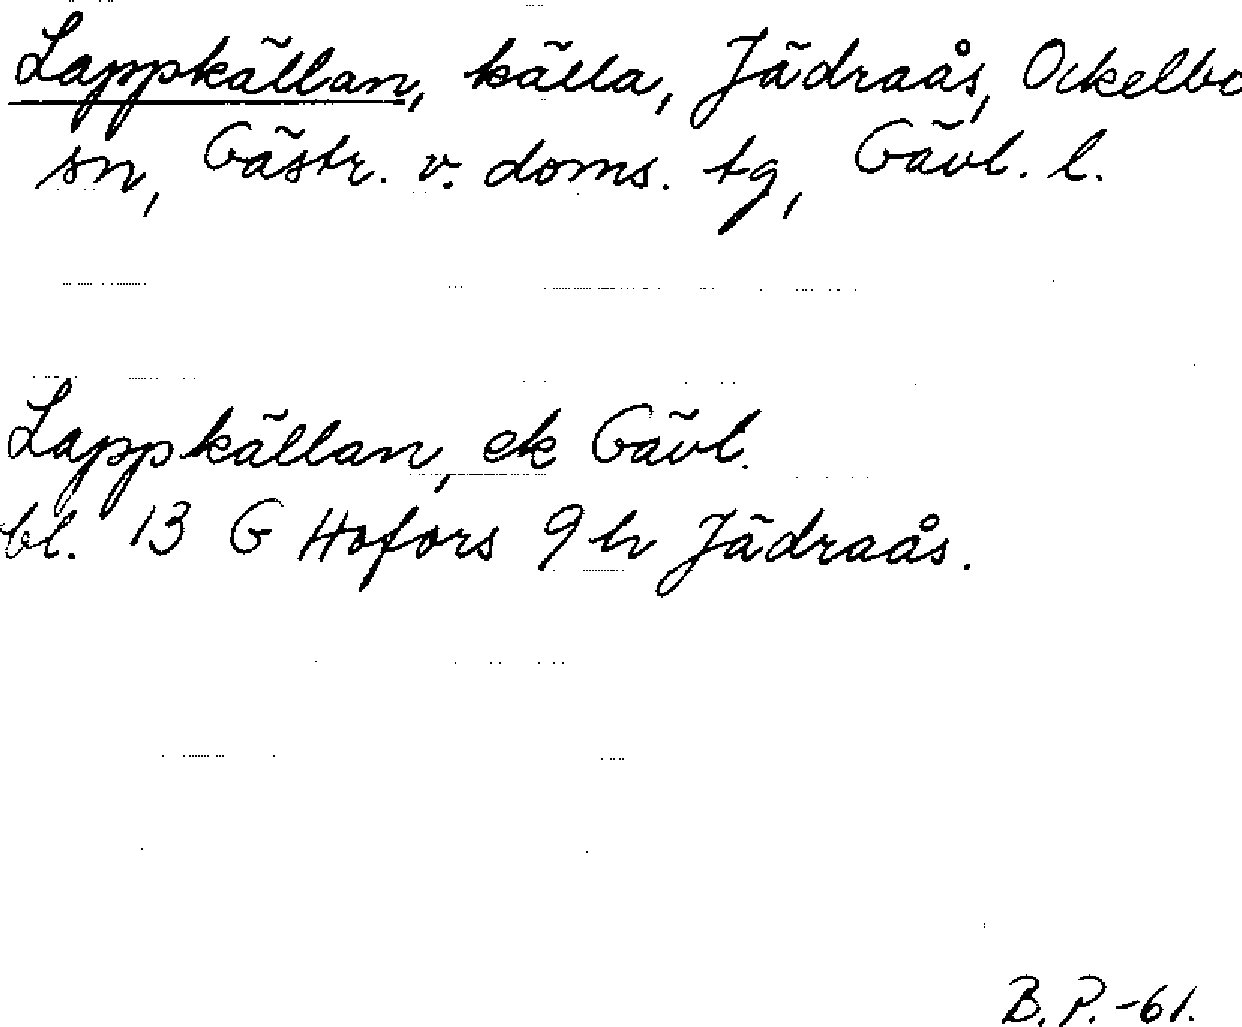 Lappkällan, källa, Jädraås, Ockelbo
sn, Gästr. v. doms. tg, Gävl. l.
Lappkällan, ek Gävl.
bl. 13 G Hofors 9 h Jädraås.
B. P. -61.